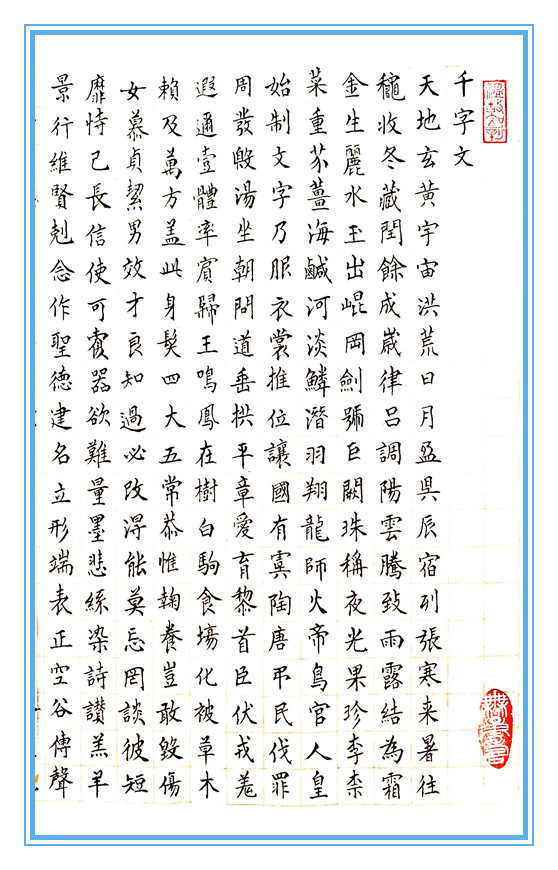 千字文
天地玄黃宇宙洪荒日月盈昃辰宿列張寒来暑往
穐收冬藏閏餘成歲律呂調陽雲騰致雨露結為霜
金生麗水玉出崐岡劍號巨闕珠稱夜光果珍李柰
菜重芥薑海鹹河淡鱗潛羽翔龍師火帝鳥官人皇
始制文字乃服衣裳推位讓國有虞陶唐弔民伐罪
周發殷湯坐朝問道垂拱平章愛育黎首臣伏戎羌
遐邇壹體率賓歸王鳴鳳在樹白駒食場化被草木
賴及萬方盖此身髮四大五常恭惟鞠養豈敢毀傷
女慕貞絜男效才良知過必改得能莫忘罔談彼短
靡恃己長信使可覆器欲難量墨悲絲染詩讚羔羊
景行維賢剋念作聖德建名立形端表正空谷傳聲